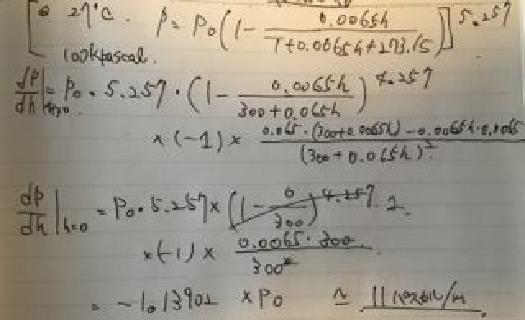 @ 27°C. P = P₀(1 - 0.0065h / T+0.0065h+273.15)^5.257
100kpascal.
dp/dh|h=0 = P₀ • 5.257 • (1 - 0.0065h / 300+0.065h)^4.257
× (-1) × 0.065 • (300+0.0065h) - 0.0065h • 0.0065 / (300+0.065h)²
dp/dh|h=0 = P₀ • 5.257 × (1 - 0/300)^4.257 1
× (-1) × 0.0065 • 300 / 300²
= -1.013902 × P₀ ≈ 11パスカル/m